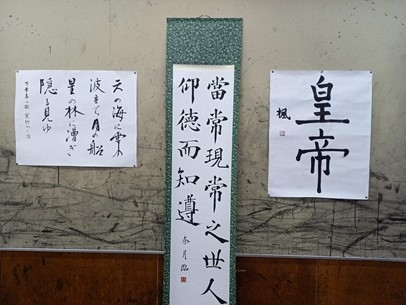 皇帝
楓
當常現常之世人
仰德而知遵
奈月臨
天の海に雲の
波立ち月の船
星の林に漕ぎ
隠る見ゆ